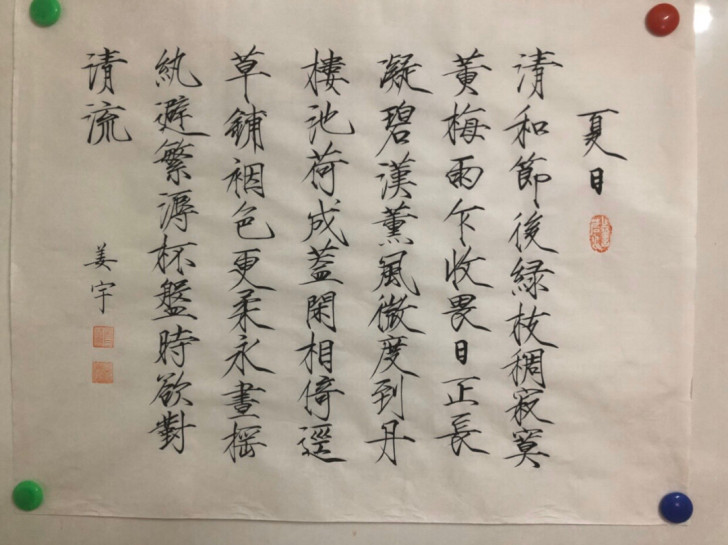 夏日
清和節後緑枝稠寂寞
黃梅雨乍收畏日正長
凝碧漢薰風微度到丹
樓池荷成蓋閑相倚逕
草鋪裀色更柔永晝揺
紈避繁溽杯盤時欲對
清流
姜宇